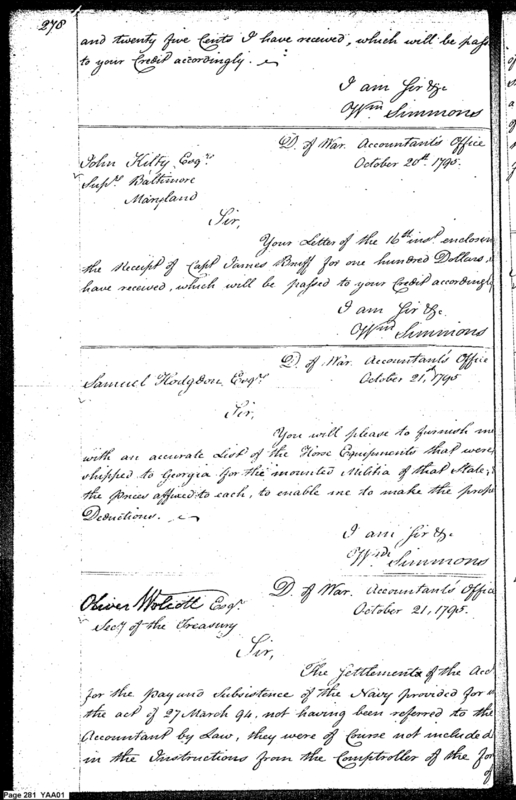 278
and twenty five Cents I have received, which will be pass
to your Credit accordingly.
I am Sir &c
Wm Simmons
D. of War. Accountant's Office
October 20th 1795.
John Kilty Esqr
Supr. Baltimore
Maryland
Sir,
Your Letter of the 16th inst enclosin
the Receipt of Capt James Bruff for one hundred Dollars,
have received, which will be passed to your Credit accordingly
I am Sir &c.
Wm Simmons
D. of War. Accountant's Office
October 21st 1795
Samuel Hodgdon, Esqr.
Sir,
You will please to furnish me
with an accurate List of the Horse Equipments that were
shipped to Georgia for the mounted Militia of that State,
the prices affixed to each, to enable me to make the prop
Deductions.
I am Sir &c.
Wm Simmons
D. of War. Accountant's Office
October 21, 1795.
Oliver Wolcott Esqr.
Secy of the Treasury
Sir,
The Settlements of the Acc
for the pay and Subsistence of the Navy provided for
the act of 27 March 94, not having been referred to the
Accountant by Law, they were of Course not included
in the Instructions from the Comptroller of the for
of
Page 281 YAA01